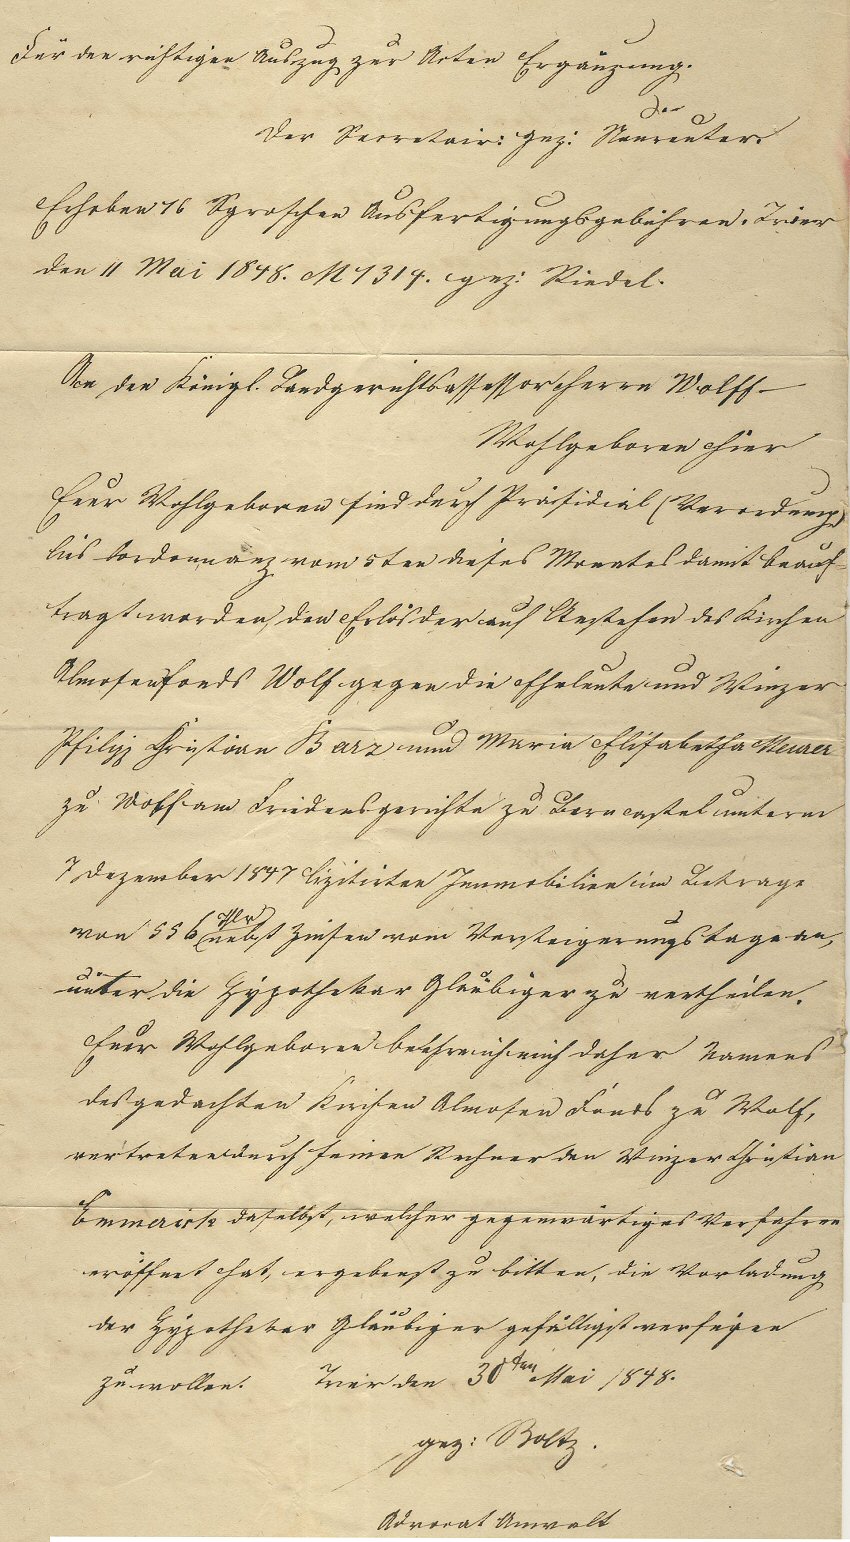 Für den richtigen Auszug zur Acten Ergänzung.
Der Secretair: gez: Neureuter.
Erhoben 16 Sgroschen Ausfertigungsgebühren. Trier
den 11 Mai 1848. M 1314. gez: Riedel.
An den Königl. Landgerichtsassessor Herrn Wolff
Wohlgeboren Hier
Euer Wohlgeboren sind durch Präsidial (Verordnung)
bis ordonnanz vom 5ten dieses Monates damit beauf-
tragt worden, den Erlös der auf Anstehen des Kirchen
Almosenfonds Wolf gegen die Eheleute und Winzer
Philipp Christian Barz und Maria Elisabetha Meurer
zu Wolf am Friedensgerichte zu Berncastel unterm
7 Dezember 1847 lizitirten Immobilien im Betrage
von 556 Thlr nebst Zinsen vom Versteigerungstage an,
unter die Hypothekar Gläubiger zu vertheilen.
Euer Wohlgeboren beehre ich mich daher Namens
des gedachten Kirchen Almosen Fonds zu Wolf,
vertreten durch seinen Rechner den Winzer Christian
Emmerich daselbst, welcher gegenwärtiges Verfahren
eröffnet hat, ergebenst zu bitten, die Vorladung
der Hypothekar Gläubiger gefälligst verfügen
zu wollen. Trier den 30ten Mai 1848.
gez: Boltz.
Advocat Anwalt